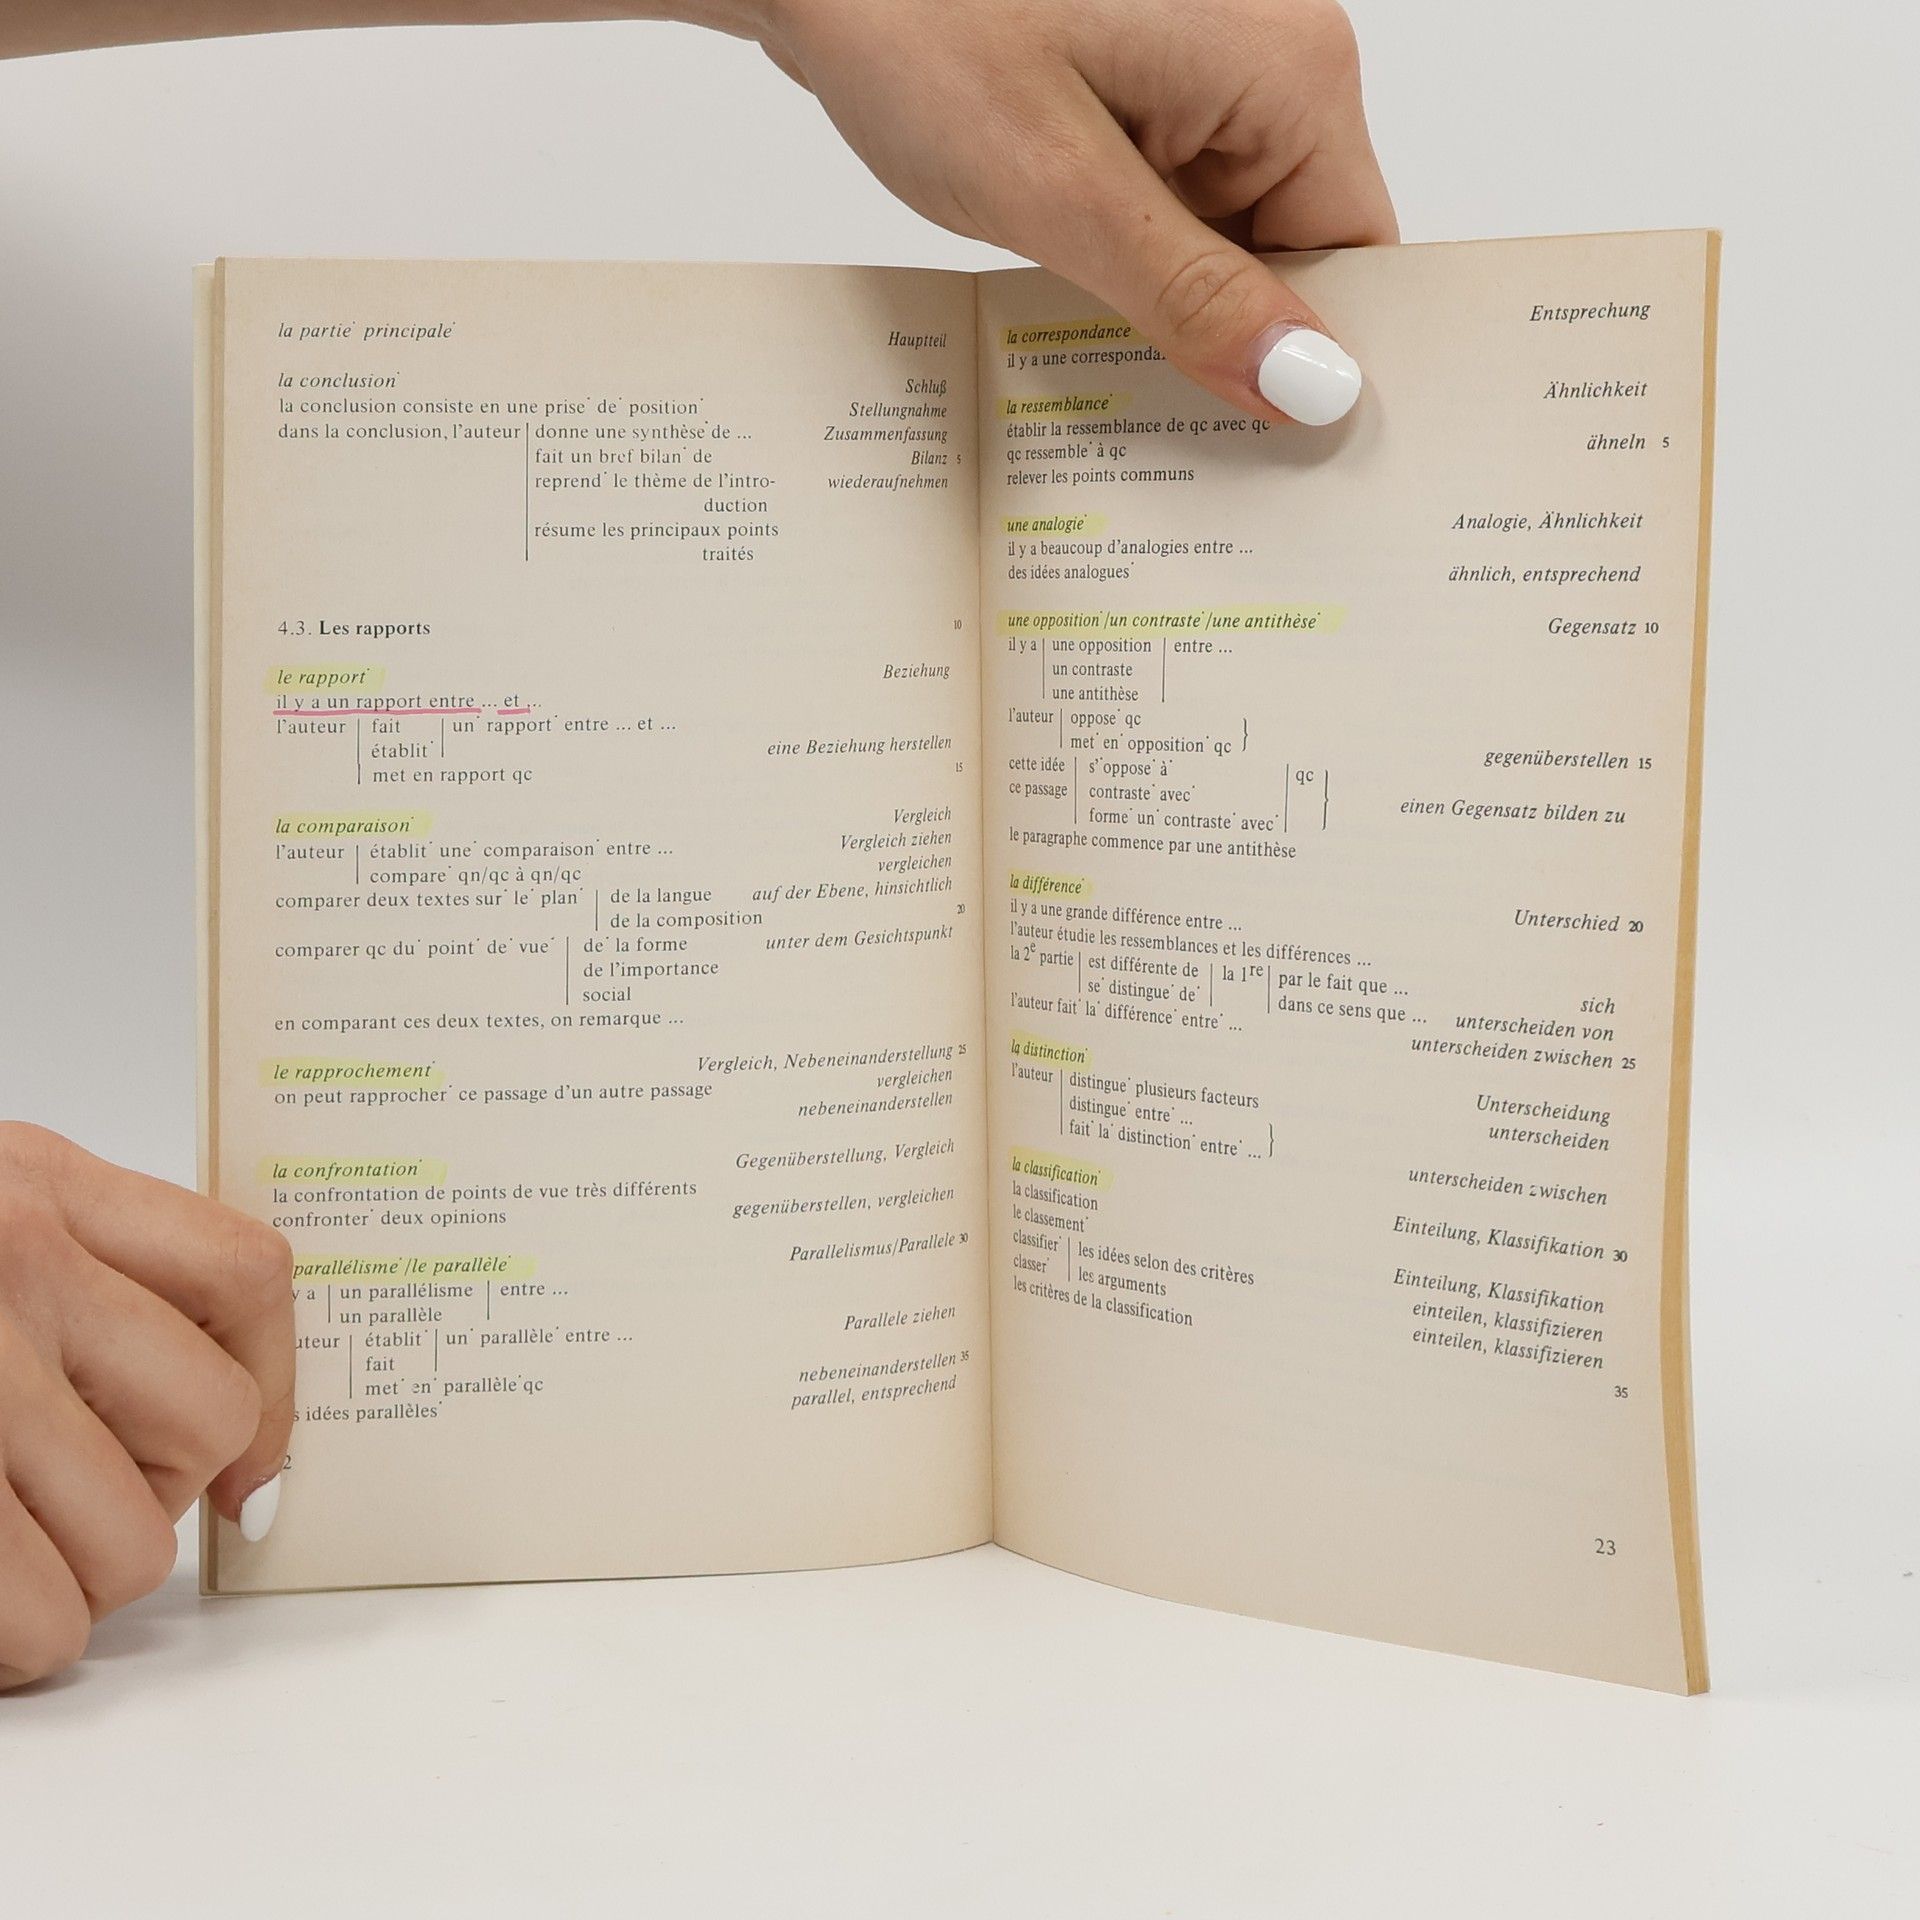 la partie˙ principale˙ Hauptteil
la conclusion˙ Schluß
la conclusion consiste en une prise˙ de˙ position˙ Stellungnahme
dans la conclusion, l'auteur | donne une synthèse˙ de ... Zusammenfassung
fait un bref bilan˙ de Bilanz 5
reprend˙ le thème de l'intro- wiederaufnehmen
duction
résume les principaux points
traités
4.3. Les rapports 10
le rapport˙ Beziehung
il y a un rapport entre ... et ...
l'auteur | fait | un˙ rapport˙ entre ... et ...
établit˙ | eine Beziehung herstellen
met en rapport qc 15
la comparaison˙ Vergleich
l'auteur | établit˙ une˙ comparaison˙ entre ... Vergleich ziehen
compare˙ qn/qc à qn/qc vergleichen
comparer deux textes sur˙ le˙ plan˙ | de la langue auf der Ebene, hinsichtlich
de la composition 20
comparer qc du˙ point˙ de˙ vue˙ | de˙ la forme unter dem Gesichtspunkt
de l'importance
social
en comparant ces deux textes, on remarque ...
le rapprochement˙ Vergleich, Nebeneinanderstellung 25
on peut rapprocher˙ ce passage d'un autre passage vergleichen
nebeneinanderstellen
la confrontation˙ Gegenüberstellung, Vergleich
la confrontation de points de vue très différents
confronter˙ deux opinions gegenüberstellen, vergleichen
parallélisme˙/le parallèle˙ Parallelismus/Parallele 30
y a | un parallélisme | entre ...
un parallèle
uteur | établit˙ | un˙ parallèle˙ entre ... Parallele ziehen
fait
met˙ en˙ parallèle˙ qc nebeneinanderstellen 35
s idées parallèles˙ parallel, entsprechend
2
la correspondance Entsprechung
il y a une corresponda
la ressemblance˙ Ähnlichkeit
établir la ressemblance de qc avec qc
qc ressemble˙ à qc ähneln 5
relever les points communs
une analogie˙ Analogie, Ähnlichkeit
il y a beaucoup d'analogies entre ...
des idées analogues˙ ähnlich, entsprechend
une opposition˙/un contraste˙/une antithèse˙ Gegensatz 10
il y a | une opposition | entre ...
un contraste
une antithèse
l'auteur | oppose˙ qc
met˙ en˙ opposition˙ qc } gegenüberstellen 15
cette idée | s'˙oppose˙ à˙ | qc
ce passage | contraste˙ avec˙ } einen Gegensatz bilden zu
forme˙ un˙ contraste˙ avec˙
le paragraphe commence par une antithèse
la différence˙ Unterschied 20
il y a une grande différence entre ...
l'auteur étudie les ressemblances et les différences ...
la 2e partie | est différente de | la 1re | par le fait que ...
se˙ distingue˙ de˙ | dans ce sens que ... sich
unterscheiden von
l'auteur fait˙ la˙ différence˙ entre˙ ... unterscheiden zwischen 25
la distinction˙ Unterscheidung
l'auteur | distingue˙ plusieurs facteurs unterscheiden
distingue˙ entre˙ ...
fait˙ la˙ distinction˙ entre˙ ... } unterscheiden zwischen
la classification˙ Einteilung, Klassifikation 30
la classification
le classement˙ Einteilung, Klassifikation
classifier˙ | les idées selon des critères einteilen, klassifizieren
classer˙ | les arguments einteilen, klassifizieren
les critères de la classification
35
23